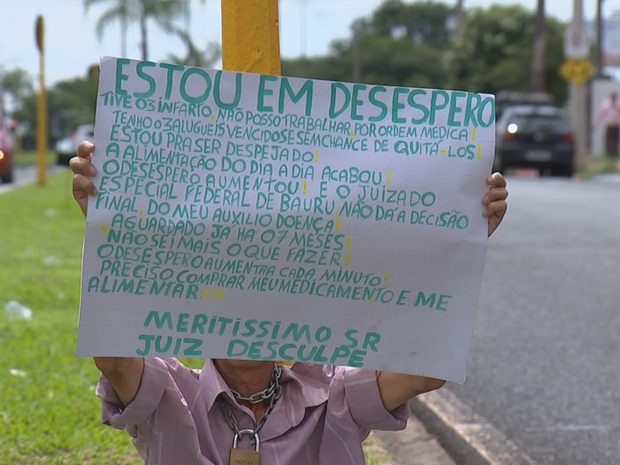 ESTOU EM DESESPERO
TIVE 03 INFARTO, NÃO POSSO TRABALHAR, POR ORDEM MÉDICA!
TENHO 03 ALUGUEIS VENCIDOS E SEM CHANCE DE QUITÁ-LOS!
ESTOU PRA SER DESPEJADO!
A ALIMENTAÇÃO DO DIA A DIA ACABOU!
O DESESPERO AUMENTOU! E O JUIZADO
ESPECIAL FEDERAL DE BAURU NÃO DÁ A DECISÃO
FINAL, DO MEU AUXILIO DOENÇA!
AGUARDADO JÁ HÁ 07 MESES!
NÃO SEI MAIS O QUE FAZER!
O DESESPERO AUMENTRA CADA MINUTO!
PRECISO COMPRAR MEU MEDICAMENTO E ME
ALIMENTAR!!!
MERITISSIMO SR
JUIZ DESCULPE